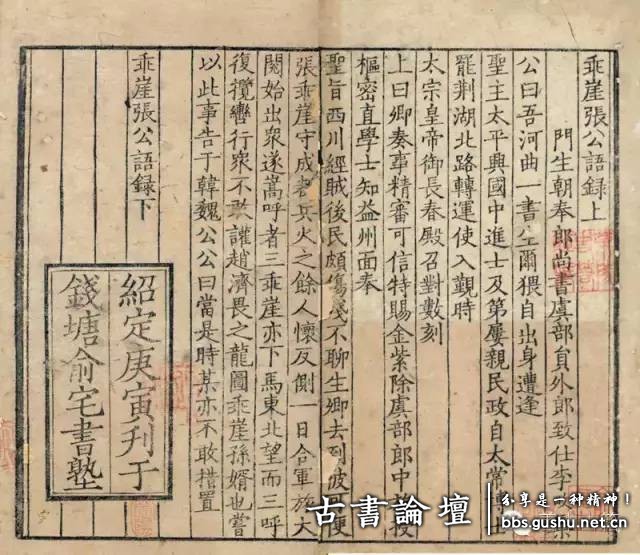 乖崖張公語録上
門生朝奉郎尚書虞部員外郎致仕李
公曰吾河曲一書生爾猥自出身遭逢
聖主太平興國中進士及第屢親民政自太常士
罷荆湖北路轉運使入覲時
太宗皇帝御長春殿召對數刻
上曰卿奏事精審可信特賜金紫除虞部郎中授
樞密直學士知益州面奉
聖旨西川經賊後民頗傷殘不聊生卿去到彼便
張乖崖守成都兵火之餘人懷反側一日合軍旅大
閱始出衆遂嵩呼者三乖崖亦下馬東北望而三呼
復攬轡行衆不敢讙趙濟畏之龍圖乖崖孫婿也嘗
以此事告于韓魏公公曰當是時某亦不敢措置
乖崖張公語録下
紹定庚寅刋于
錢塘俞宅書塾
古書論壇
分享是一种精神！
bbs.gushu.net.cn